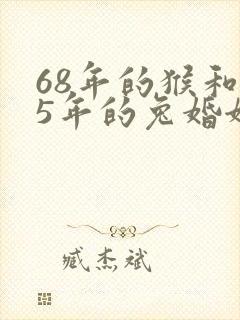 68年的猴和
5年的兔婚
臧杰斌